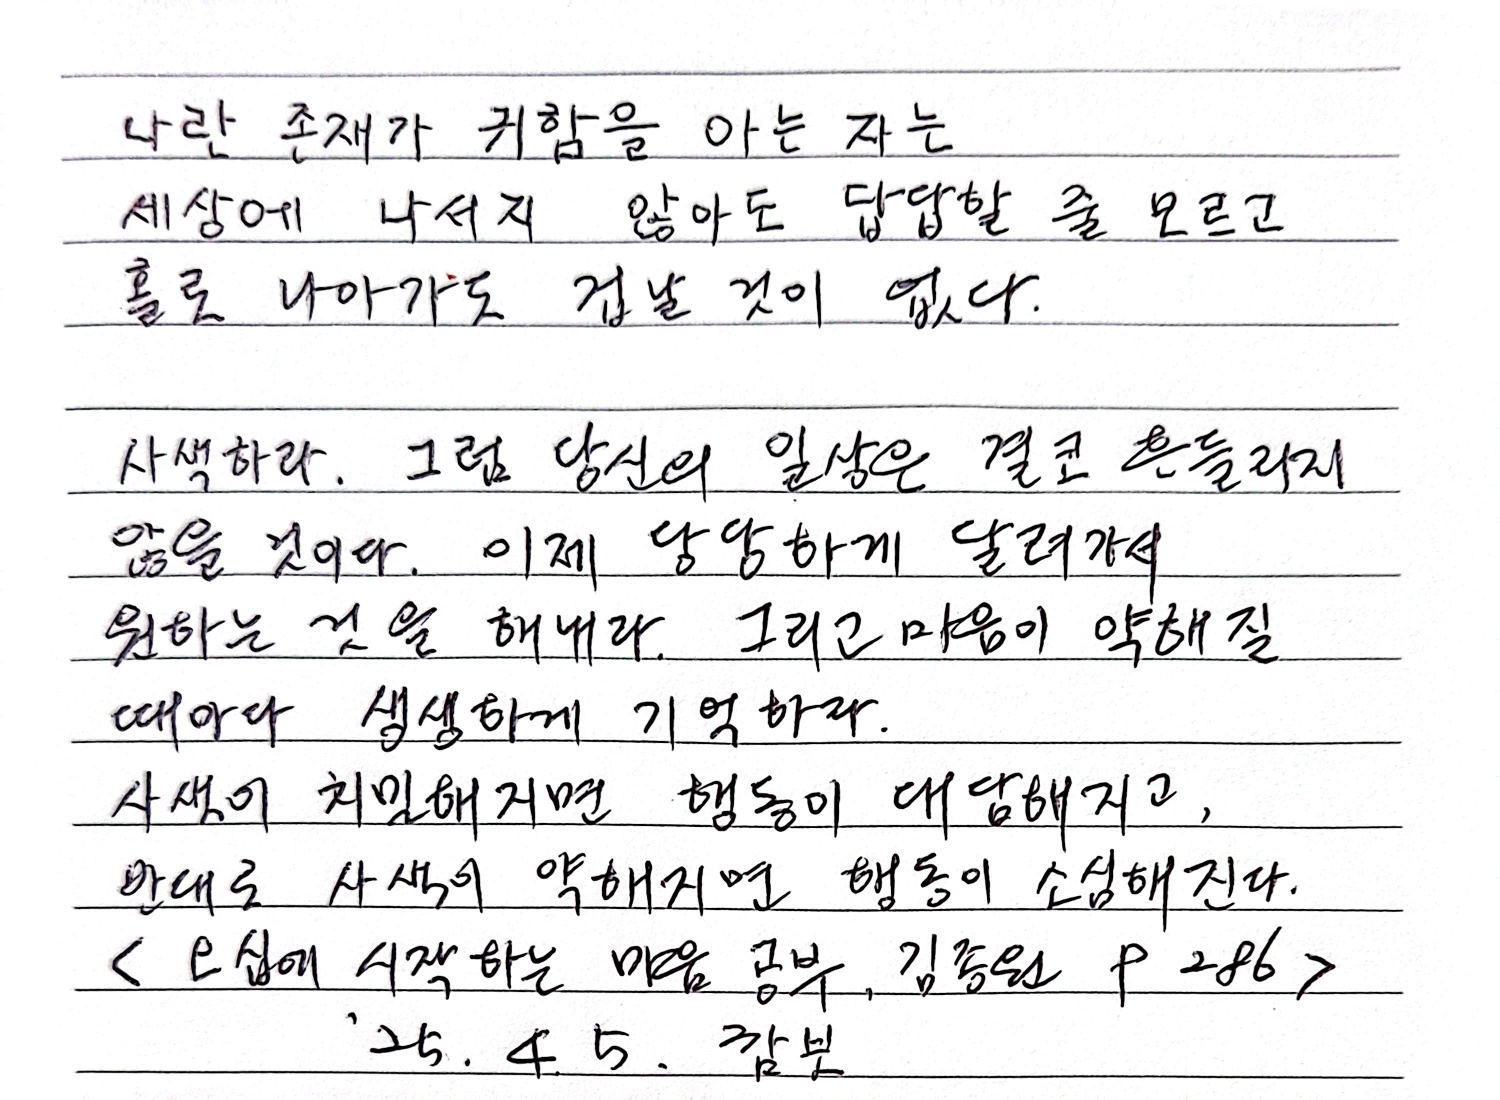 나란 존재가 귀함을 아는 자는
세상에 나서지 않아도 답답할 줄 모르고
홀로 나아가도 겁날 것이 없다.
사색하라. 그럼 당신의 일상은 결코 흔들리지
않을 것이다. 이제 당당하게 달려가서
원하는 것을 해내라. 그리고 마음이 약해질
때마다 생생하게 기억하라.
사색이 치밀해지면 행동이 대담해지고,
반대로 사색이 약해지면 행동이 소심해진다.
< 오십에 시작하는 마음 공부, 김종원 P 286 >
'25. 4. 5.